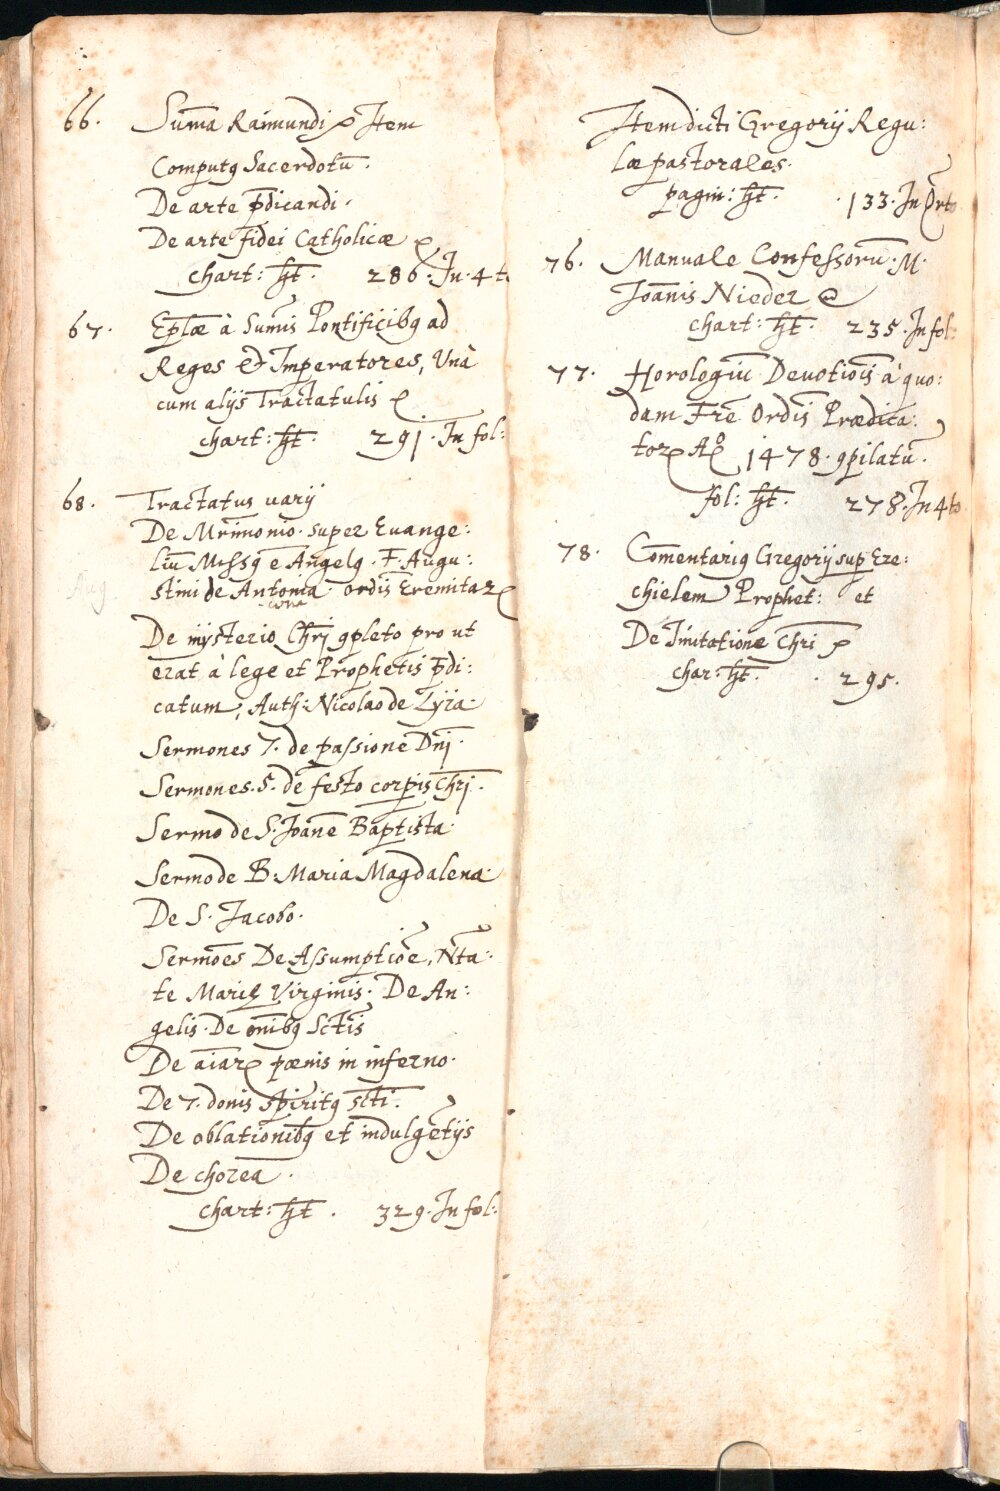 66. Suma Raimundi ꝛ Item
Computꝯ Sacerdotū.
De arte p̄dicandi.
De arte fidei Catholicæ ꝛ
chart: h̄t. 286. In. 4to
67. Ep̄læ à Sumis Pontificibꝯ ad
Reges et Imperatores, Unà
cum alijs Tractatulis ꝛ
chart: h̄t. 291. In fol:
68. Tractatus varij
De Mr̄imonio. super Euange:
liū Missꝯ e Angelꝯ. F. Augu:
Aug stini de Antonia ordīs Eremitaꝝ
cona
De mÿsterio Chrj ꝯpleto pro ut
erat à lege et Prophetis p̄di:
catum, Auth: Nicolao de Lÿra.
Sermones 7. de passione Dn̄j.
Sermones. 5. de festo corpīs Chrj.
Sermo de S. Joāne Baptista.
Sermo de B. Maria Magdalena.
De S. Jacobo.
Sermōes De Assumptiōe, Nt̄a:
te Mariȩ Virginis. De An:
gelis. De ōnibꝯ Sctīs
De aīaꝝ pænis in inferno.
De 7. donis Spiritꝯ sctī.
De oblationibꝯ et indulgētijs
De chorea.
chart: h̄t. 329. In fol:
Item dicti Gregorij Regu:
læ pastorales.
pagin: h̄t. 133. In Qrto
76. Manuale Confessorū. M.
Joānis Nieder ꝛ
chart: h̄t. 235. In fol:
77. Horologiū Deuotiōis à quo:
dam Frē Ordīs Prædica:
toꝝ Aº 1478. ꝯpilatū.
fol: h̄t. 278. In 4to
78. Comentariꝯ Gregorij sup Eze:
chielem Prophet: et
De Imitatione Chrī ꝛ
char: h̄t. 295.